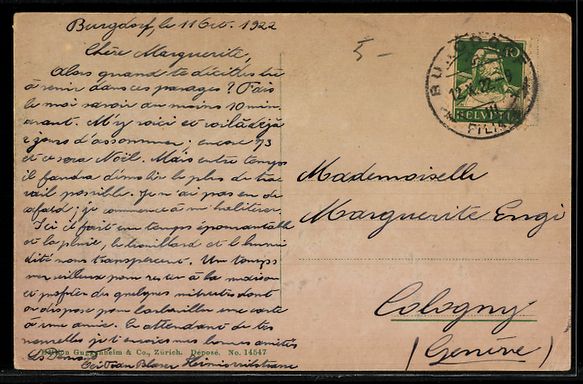 Burgdorf, le 11 Oct. 1922
Chère Marguerite,
Alors quand te décides tu
à venir dans ces parages? Fais
le moi savoir au moins 10 min.
avant. M'y voici et voilà déjà
2 jours d'assommer; encore 73
et ce sera Noël. Mais entre temps
il faudra démolir le plus de tra
vail possible. Je n'ai pas eu de
cafard; je commence à m'habituer.
Ici il fait un temps épouvantable
et la pluie, le brouillard et l'humi
dité nous transpercent. Un temps
merveilleux pour rester à la maison
et profiter des quelques minutes dont
on dispose pour barbouiller une carte
à une amie. En attendant de tes
nouvelles je t'envoie mes bonnes amitiés
5-
BURGDORF
12.X.22
FILIALE
10
HELVETIA
Mademoiselle
Marguerite Engi
Cologny
(Genève)
Guggenheim & Co., Zürich. Déposé. No. 14547